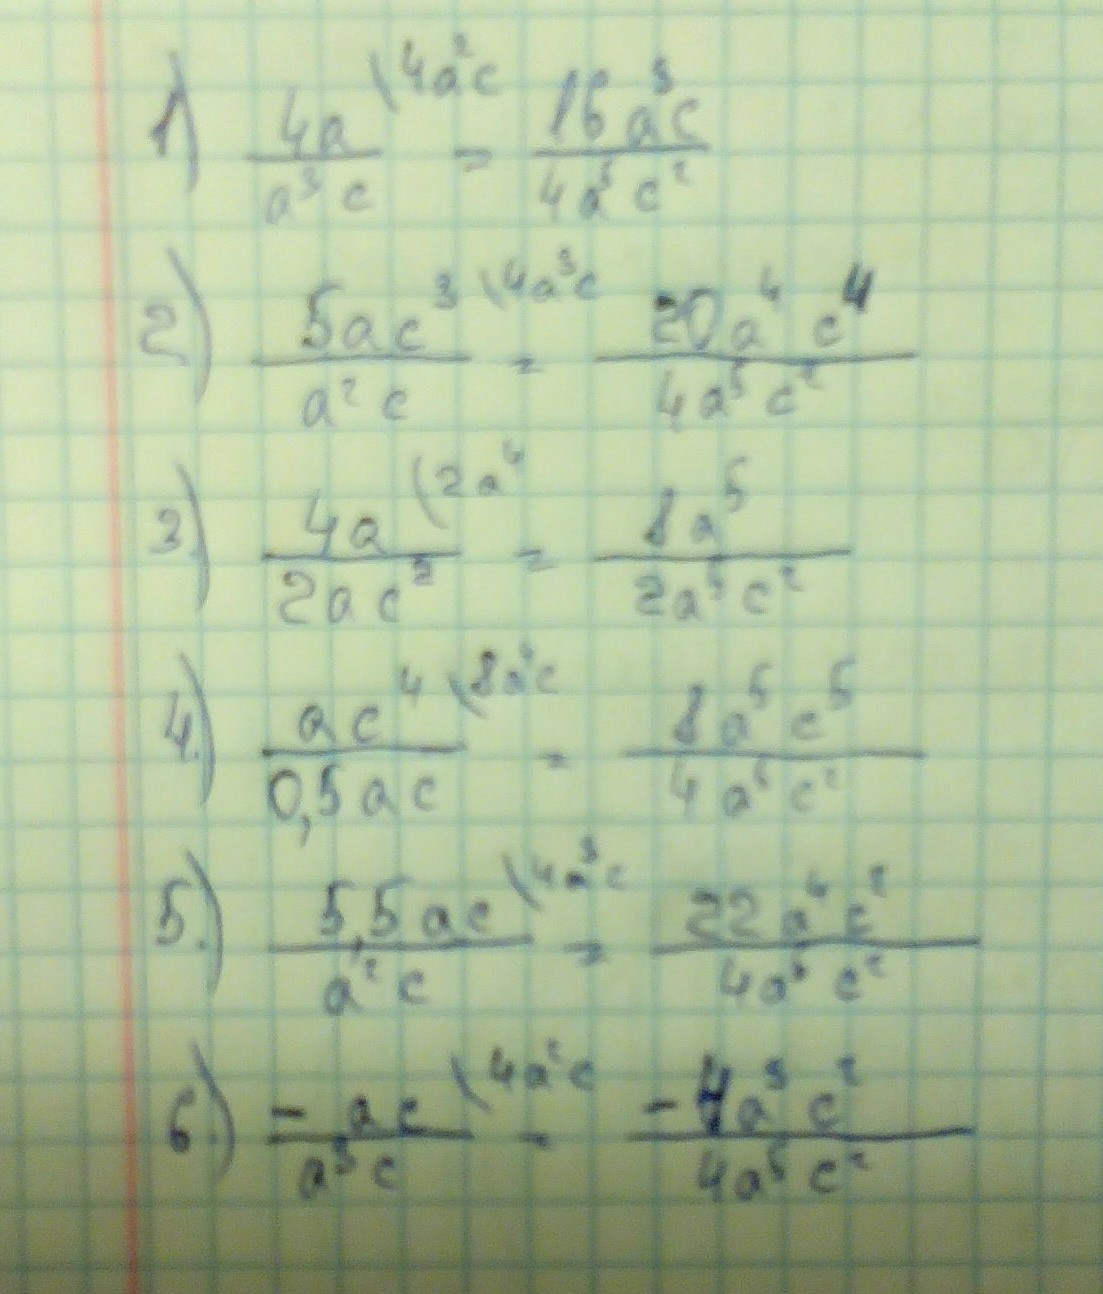 1) 4a/a³c \4a²c = 16a³c/4a⁵c²
2) 5ac³/a²c \4a³c = 20a⁴c⁴/4a⁵c²
3) 4a/2ac² (2a⁴ = 8a⁵/2a⁵c²
4.) ac⁴/0,5ac \8a⁴c = 8a⁵c⁵/4a⁵c²
5.) 5,5ac/a²c \4a³c = 22a⁴c²/4a⁵c²
6.) - ac/a³c \4a²c = -4a³c²/4a⁵c²